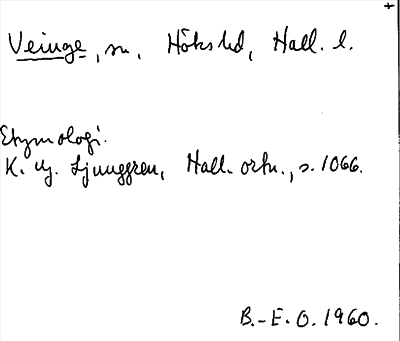 +
Veinge, sn. Höks hd, Hall. l.
Etymologi.
K. G. Ljunggren, Hall. ortn., s. 1066.
B.-E. O. 1960.